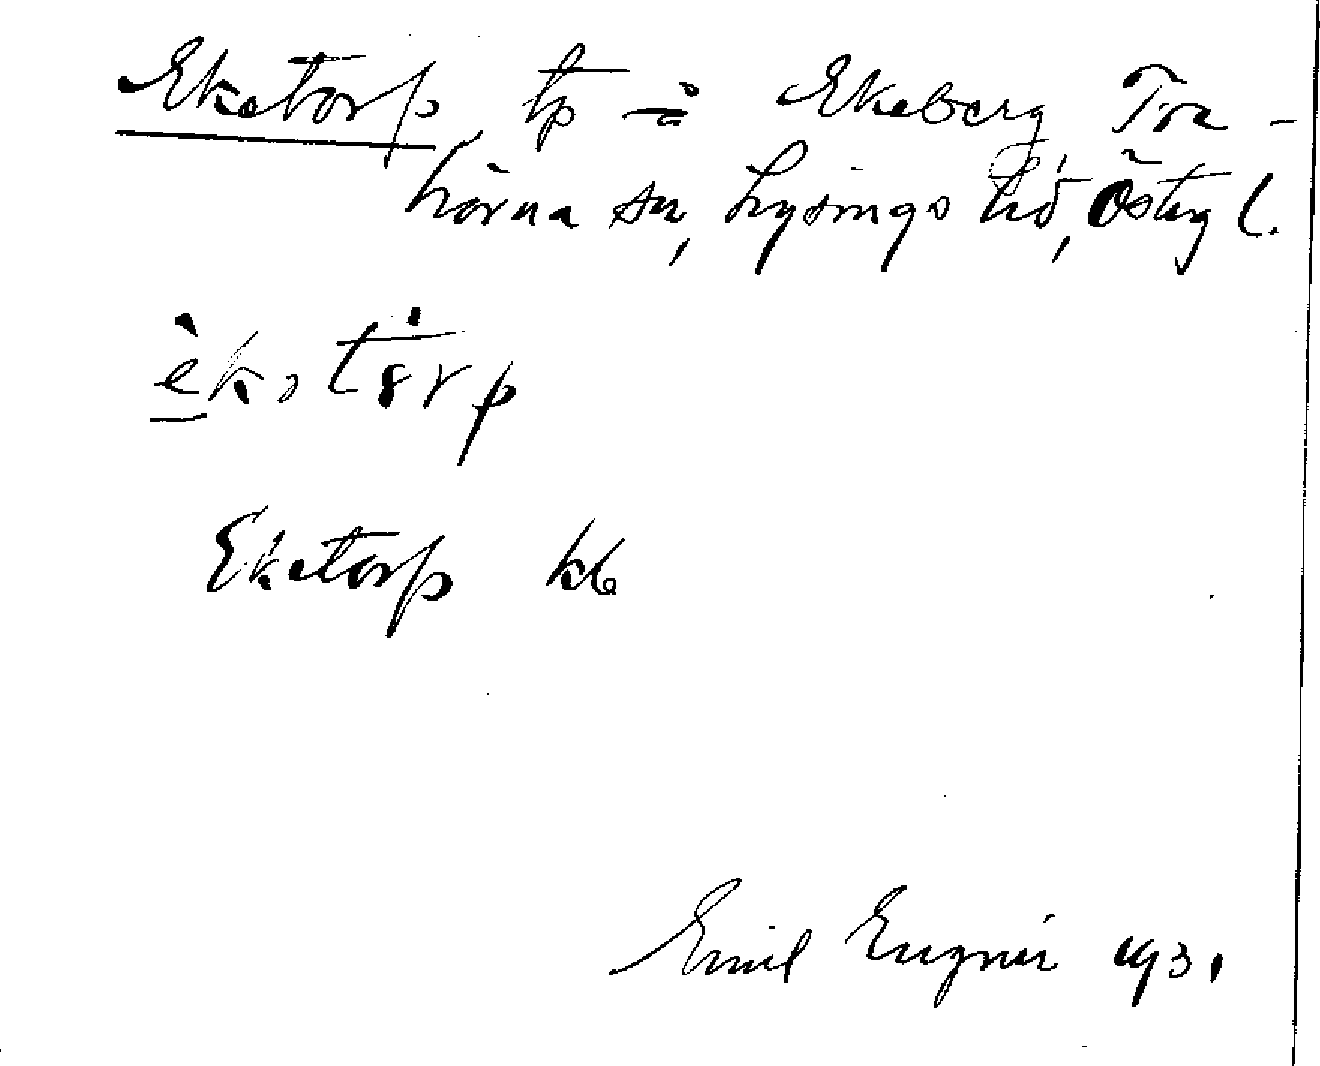 Eketorp, tp å Ekeberg Tra-
hörna sn, Lysings hd, Östg l.
èkətȯrp
Eketorp kb
Emil Engnér 1931